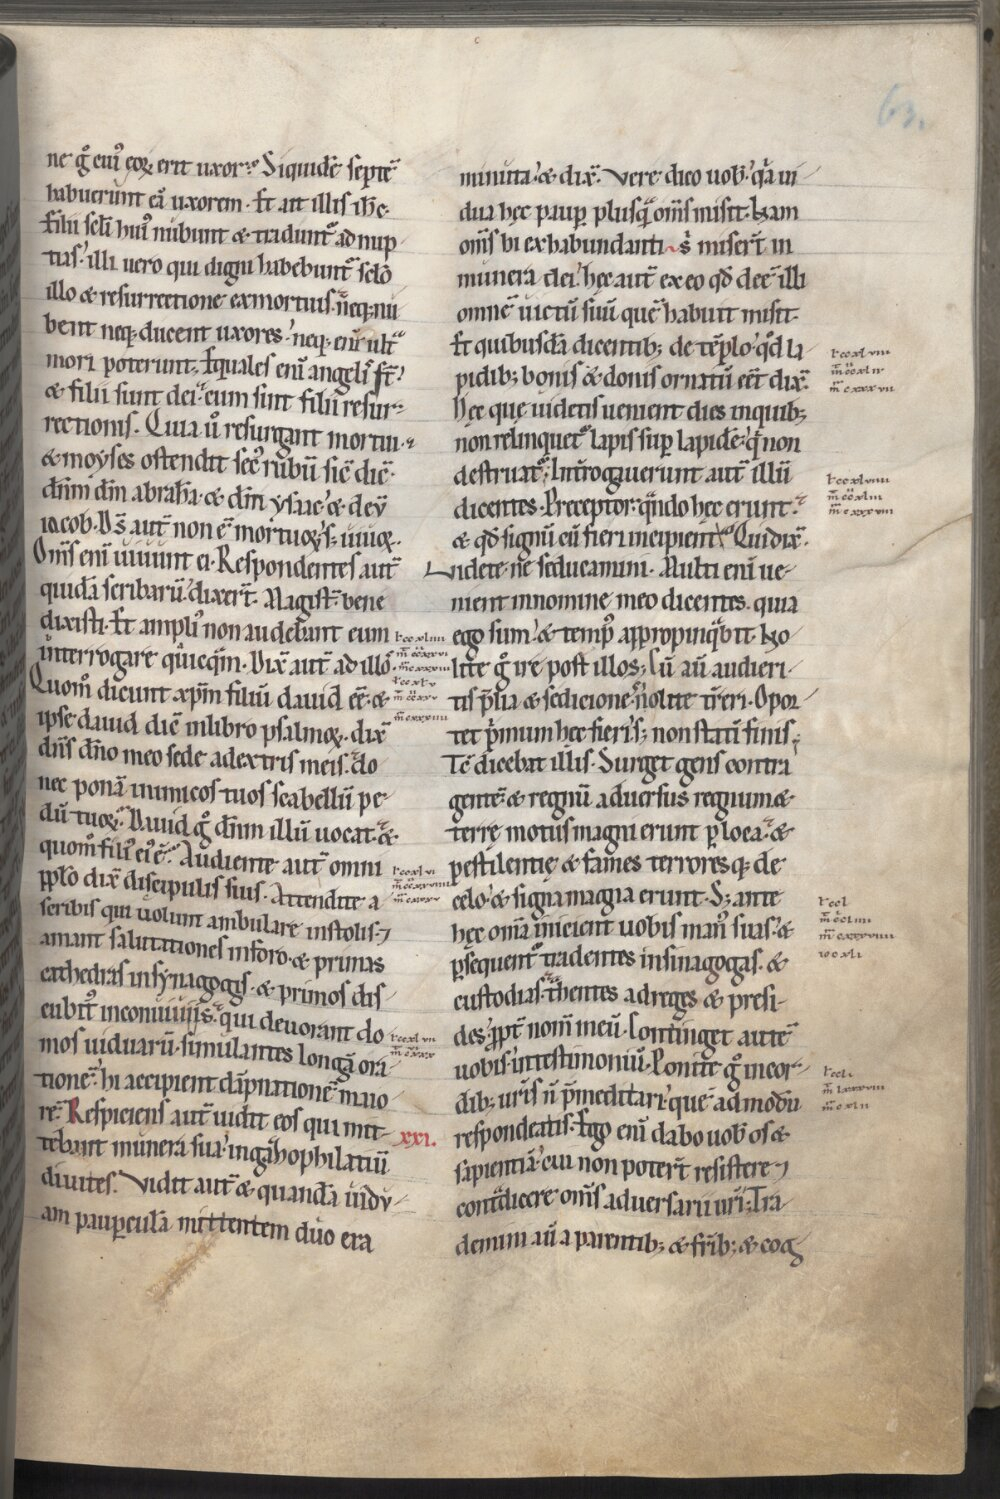 63.
ne g̊ cuiꝰ eoꝝ erit uxor. Siquidē septē
habuerunt eā uxorem. Et ait illis ihc.
Filii scl̄i huiꝰ nubunt & tradunt᷑ ad nup
tias. illi uero qui digni habebunt᷑ sclo
illo & resurrectione ex mortuis. neq; nu
bent neq; ducent uxores. neq; enī ult͛
mori poterunt. Equales enī angelis st̄.
& filii sunt dei. cum sint filii resur
rectionis. Quia u̅ resurgant mortui.
& moyses ostendit secꝰ rubū sic̄ dic̄.
dn̄m dm̄ abrahā. & dm̄ ysaac. & deū
iacob. Ds̄ aut̄ non ē mortuoꝝ. s; uiuoꝝ.
Om̄s enī uiuunt ei. Respondentes aut̄
quidā scribarū. dixer̄t. Magist̄. bene
dixisti. Et ampliꝰ non audebant eum
interrogare quicq̄m. Dix̄ aut̄ ad illos.
Quom̊ dicunt xp̄m filiū dauid ēē. &
ipse dauid dic̄ in libro psalmoꝝ. dix̄
dn̄s dn̄o meo sede a dextris meis. do
nec ponā inimicos tuos scabellū pe
dū tuoꝝ. Dauid g̊ dn̄m illū uocat. &
quom̊ filiꝰ eiꝰ ē. Audiente aut̄ omni
pplo dix̄ discipulis suis. Attendite a
scribis qui uolunt ambulare in stolis. ⁊
amant salutationes in foro. & primas
cathedras in synagogis. & primos dis
cubitꝰ in conuiuiis. qui deuorant do
mos uiduarū. simulantes longā ora
tionē. hi accipient dāpnationē maio
rē. Respiciens aut̄ uidit eos qui mit
xxi.
tebant munera sua. in gazhophilatiū
diuites. Vidit aut̄ & quandā uidu
am paup̄culā mittentem duo era
minuta. & dix̄. Vere dico uob̄. q̄a ui
dua hęc paup̄ plusq̄ om̄s misit. Nam
om̄s hi ex habundanti s̄ miser̄t in
munera dei. hęc aut̄ ex eo qd̄ dee᷑ illi
omnē uictū suū quē habuit misit.
Et quibusdā dicentib; de tēplo. qd̄ la
pidib; bonis & donis ornatū eēt dix̄.
Hęc que uidetis uenient dies in quib;
non relinquet᷑ lapis sup̄ lapidē. q̄ non
destruat᷑. Int̄rogauerunt aut̄ illū
dicentes. Preceptor. q̄ndo hęc erunt.
& qd̄ signū cū fieri incipient. Qui dix̄.
Videte ne seducamini. Multi enī ue
nient in nomine meo dicentes. quia
ego sum. & tempꝰ appropinq̄bit. No
lite g̊ ire post illos. Cū au̅ audieri
tis p̄lia & sediciones. nolite t̄reri. Opor
tet p̄mum hec fieri. s; non statī finis.
Tc̄ dicebat illis. Surget gens contra
gentē. & regnū aduersus regnum &
terrę motus magni erunt p̱ loca. &
pestilentię & fames terroresq; de
celo. & signa magna erunt. S; ante
hęc om̄a inicient uobis manꝰ suas. &
p̱sequent᷑ tradentes in sinagogas. &
custodias. t̄hentes ad reges & presi
des. ꝓpt̄ nom̄ meū. Continget autē
uobis. in testimoniū. Ponite g̊ in cor
dib; ur̄is n̄ p̄meditari. quē ad modū
respondeatis. Ego enī dabo uob̄ os &
sapientiā. cui non poter̄t resistere ⁊
cont̄dicere om̄s aduersarii ur̄i. Tra
demini au̅ a parentib; & fr̄ib; & cog